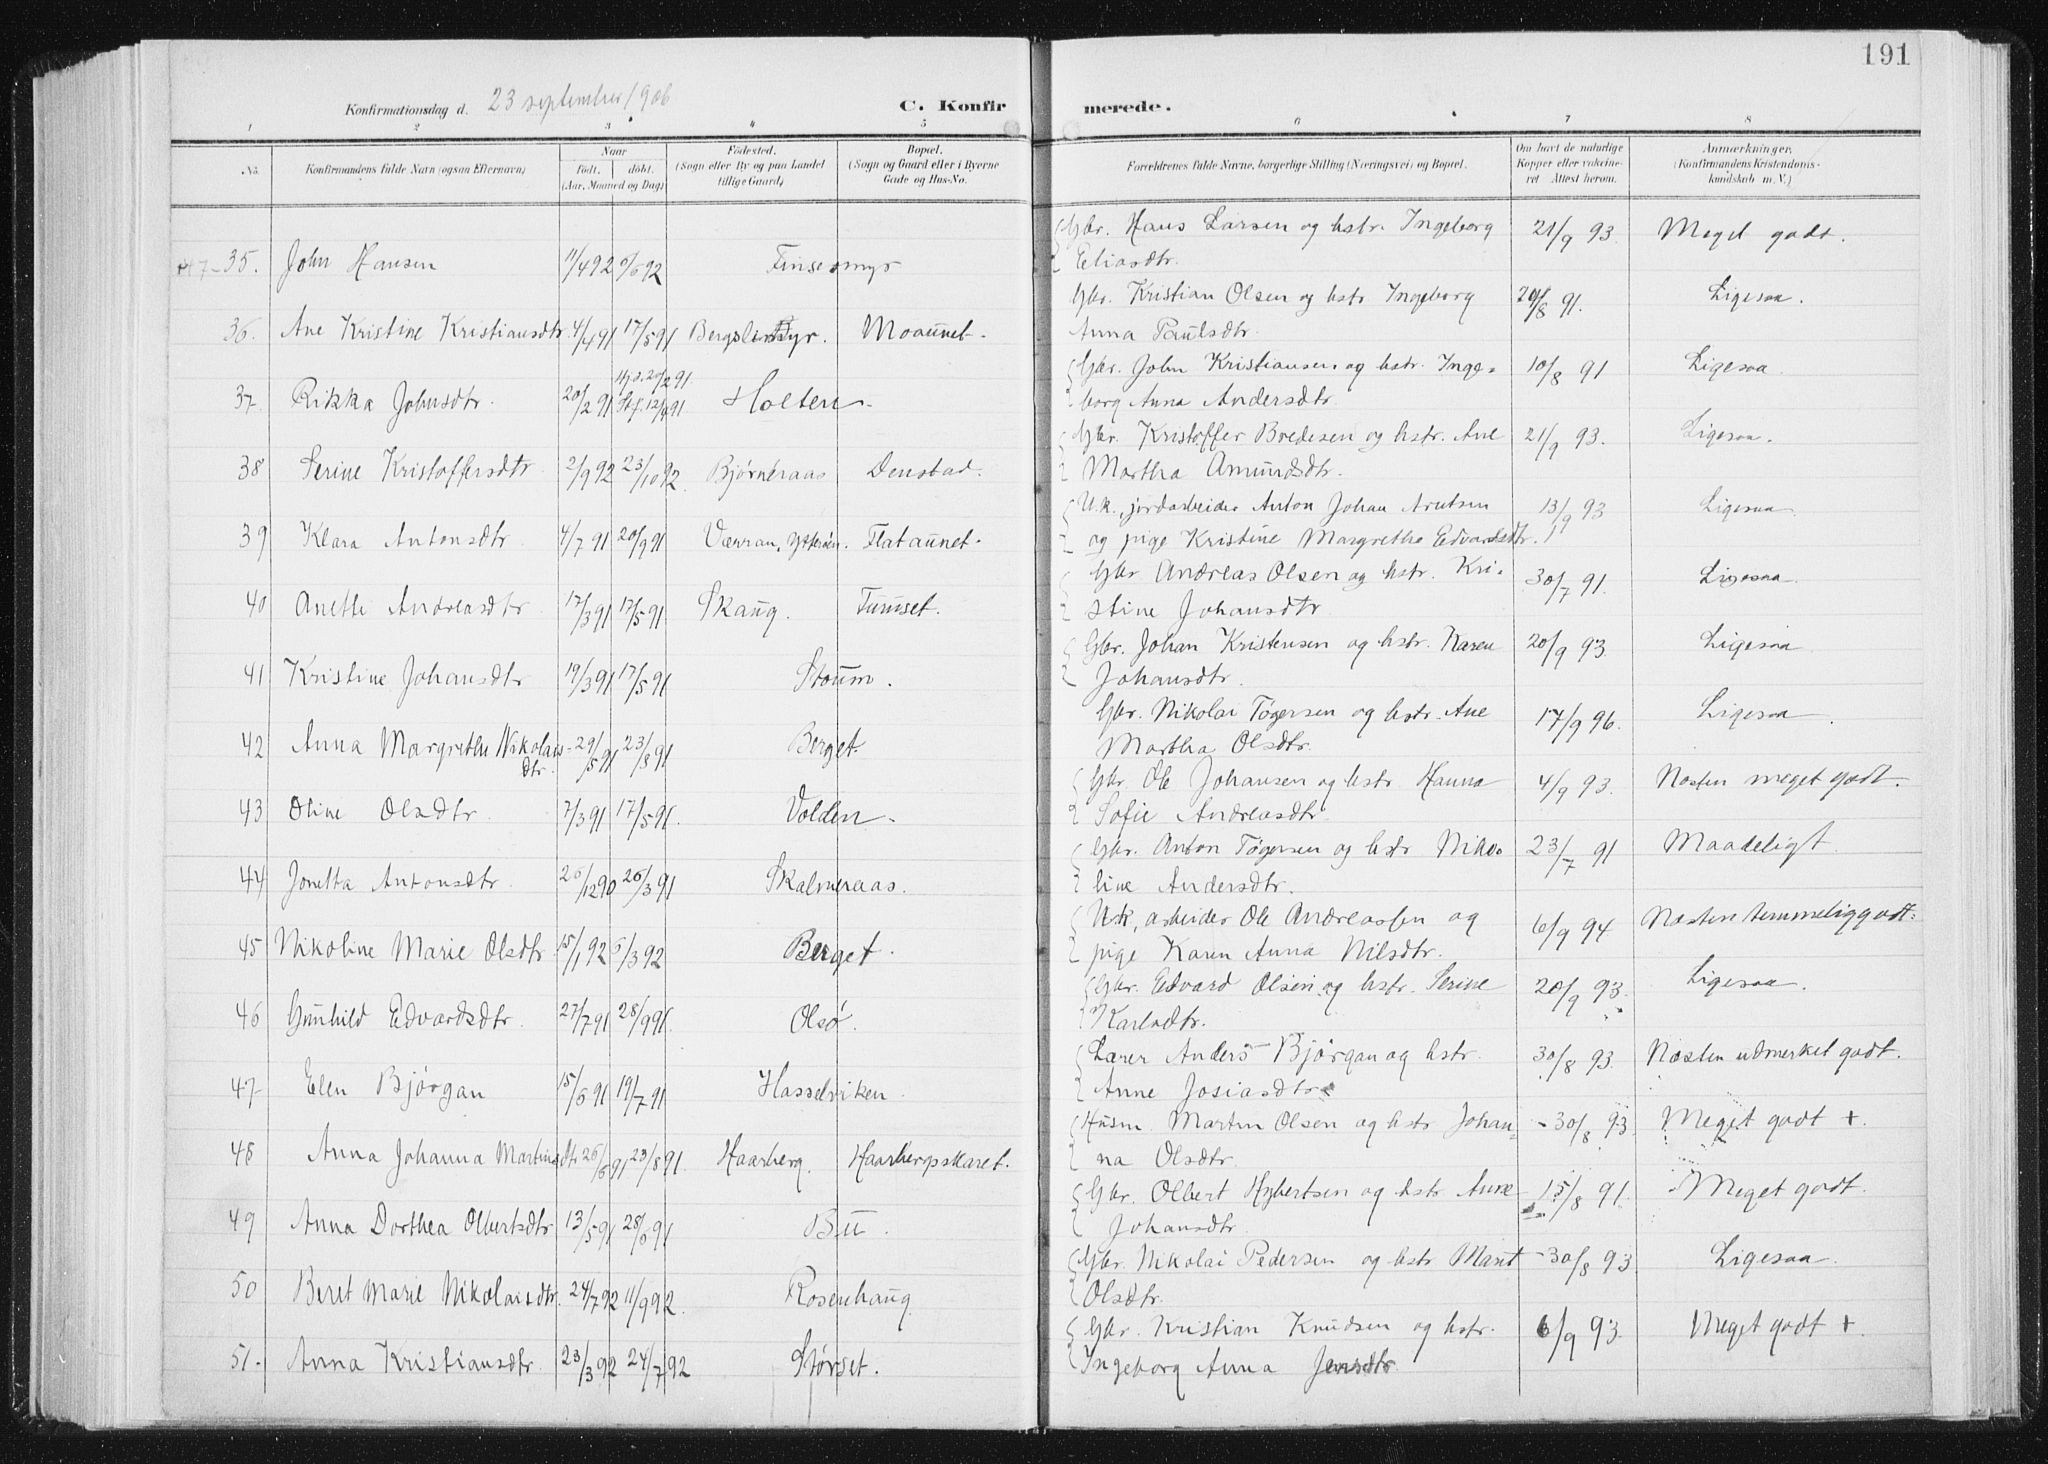 191
Konfirmationsdag d. 23 september 1906 C. Konfir merede.
1 2 3 4 5 6 7 8
No. Konfirmandens fulde Navn (ogsaa Efternavn) Naar født, døbt. (Aar, Maaned og Dag) Fødested. (Sogn eller By og paa Landet tillige Gaard) Bopæl. (Sogn og Gaard eller i Byerne Gade og Hus-No. Forældrenes fulde Navne, borgerlige Stilling (Næringsvei) og Bopæl. Om havt de naturlige Kopper eller vaccineret Attest herom. Anmærkninger, (Konfirmandens Kristendomskundskab m. V.)
Gbr. Hans Larsen og hstr. Ingeborg 21/9 93. Meget godt.
35. John Hansen 11/4 92 6/6 92 Finsesmyr Eliasdtr.
Gbr. Kristian Olsen og hstr Ingeborg 20/8 91. Ligesaa.
36. Ane Kristine Kristiansdtr. 4/4 91 17/5 91 Moaunet. Anna Paulsdtr.
Gbr. John Kristiansen og hstr. Inge- 10/8 91 Ligesaa.
37. Rikka Johnsdtr. 20/2 91 Hj.d. 20/2 91 Holten. borg Anna Andersdtr.
Gbr. Kristoffer Bredesen og hstr. Ane 21/9 93. Ligesaa.
38 Serine Kristoffersdtr 2/9 92 23/10 92. Bjørneraas Denstad. Martha Amundsdtr.
U.k., jordarbeider Anton Johan Arntsen 13/9 93 Ligesaa.
39 Klara Antonsdtr. 4/7 91 20/9 91 Værran, Ytterøen. Flataunet. og pige Kristine Margrethe Edvardsdtr.
Gbr. Andreas Olsen og hstr. Kri- 30/7 91. Ligesaa.
40 Anette Andreasdtr. 17/3 91 17/5 91 Skaug. Tumset. stine Johansdtr
Gbr. Johan Kristensen og hstr. Karen 20/9 93. Ligesaa
41 Kristine Johansdtr 19/3 91 17/5 91 Stoum. Johansdtr.
Gbr. Nikolai Tøgersen og hstr. Ane 17/9 96. Ligesaa.
42 Anna Margrethe Nikolais- 29/5 91 23/8 91 Berget. Martha Olsdtr.
dtr.
Gbr. Ole Johansen og hstr Hanna 4/9 93. Næsten meget godt.
43 Oline Olsdtr. 7/3 91 17/5 91. Volden. Sofie Andreasdtr.
Gbr. Anton Tøgersen og hstr Niko- 23/7 91 Maadeligt.
44 Jonetta Antonsdtr. 26/12 90 26/3 91 Skalmeraas. line Andersdtr.
U.k., arbeider Ole Andreassen og 6/9 94 Næsten temmelig godt.
45 Nikoline Marie Olsdtr. 15/1 92 6/3 92 Berget. pige Karen Anna Nilsdtr.
Gbr. Edvard Olsen og hstr. Serine 20/9 93. Ligesaa.
46 Gunhild Edvardsdtr. 27/7 91 28/9 91. Olsø. Karlsdtr.
Lærer Anders Bjørgan og hstr. 30/8 93. Næsten udmerket godt.
47 Elen Bjørgan 15/6 91 19/7 91 Hasselviken. Anne Josiasdtr.
Husm. Martin Olsen og hstr Johan- 30/8 93. Meget godt +.
48 Anna Johanna Martinsdtr 26/6 91 23/8 91. Haarberg. Haarbergskaret. na Olsdtr.
Gbr. Olbert Hybertsen og hstr Anne 15/8 91. Meget godt.
49 Anna Dorthea Olbertsdtr 13/5 91 28/6 91 Bu. Johansdtr.
Gbr. Nikolai Pedersen og hstr Marit 30/8 93. Ligesaa.
50 Beret Marie Nikolaisdtr. 24/7 92 11/9 92. Rosenhaug Olsdtr.
Gbr. Kristian Knudsen og hstr. 6/9 93. Meget godt +.
51. Anna Kristiansdtr. 23/3 92 24/7 92 Størset. Ingeborg Anna Jensdtr.